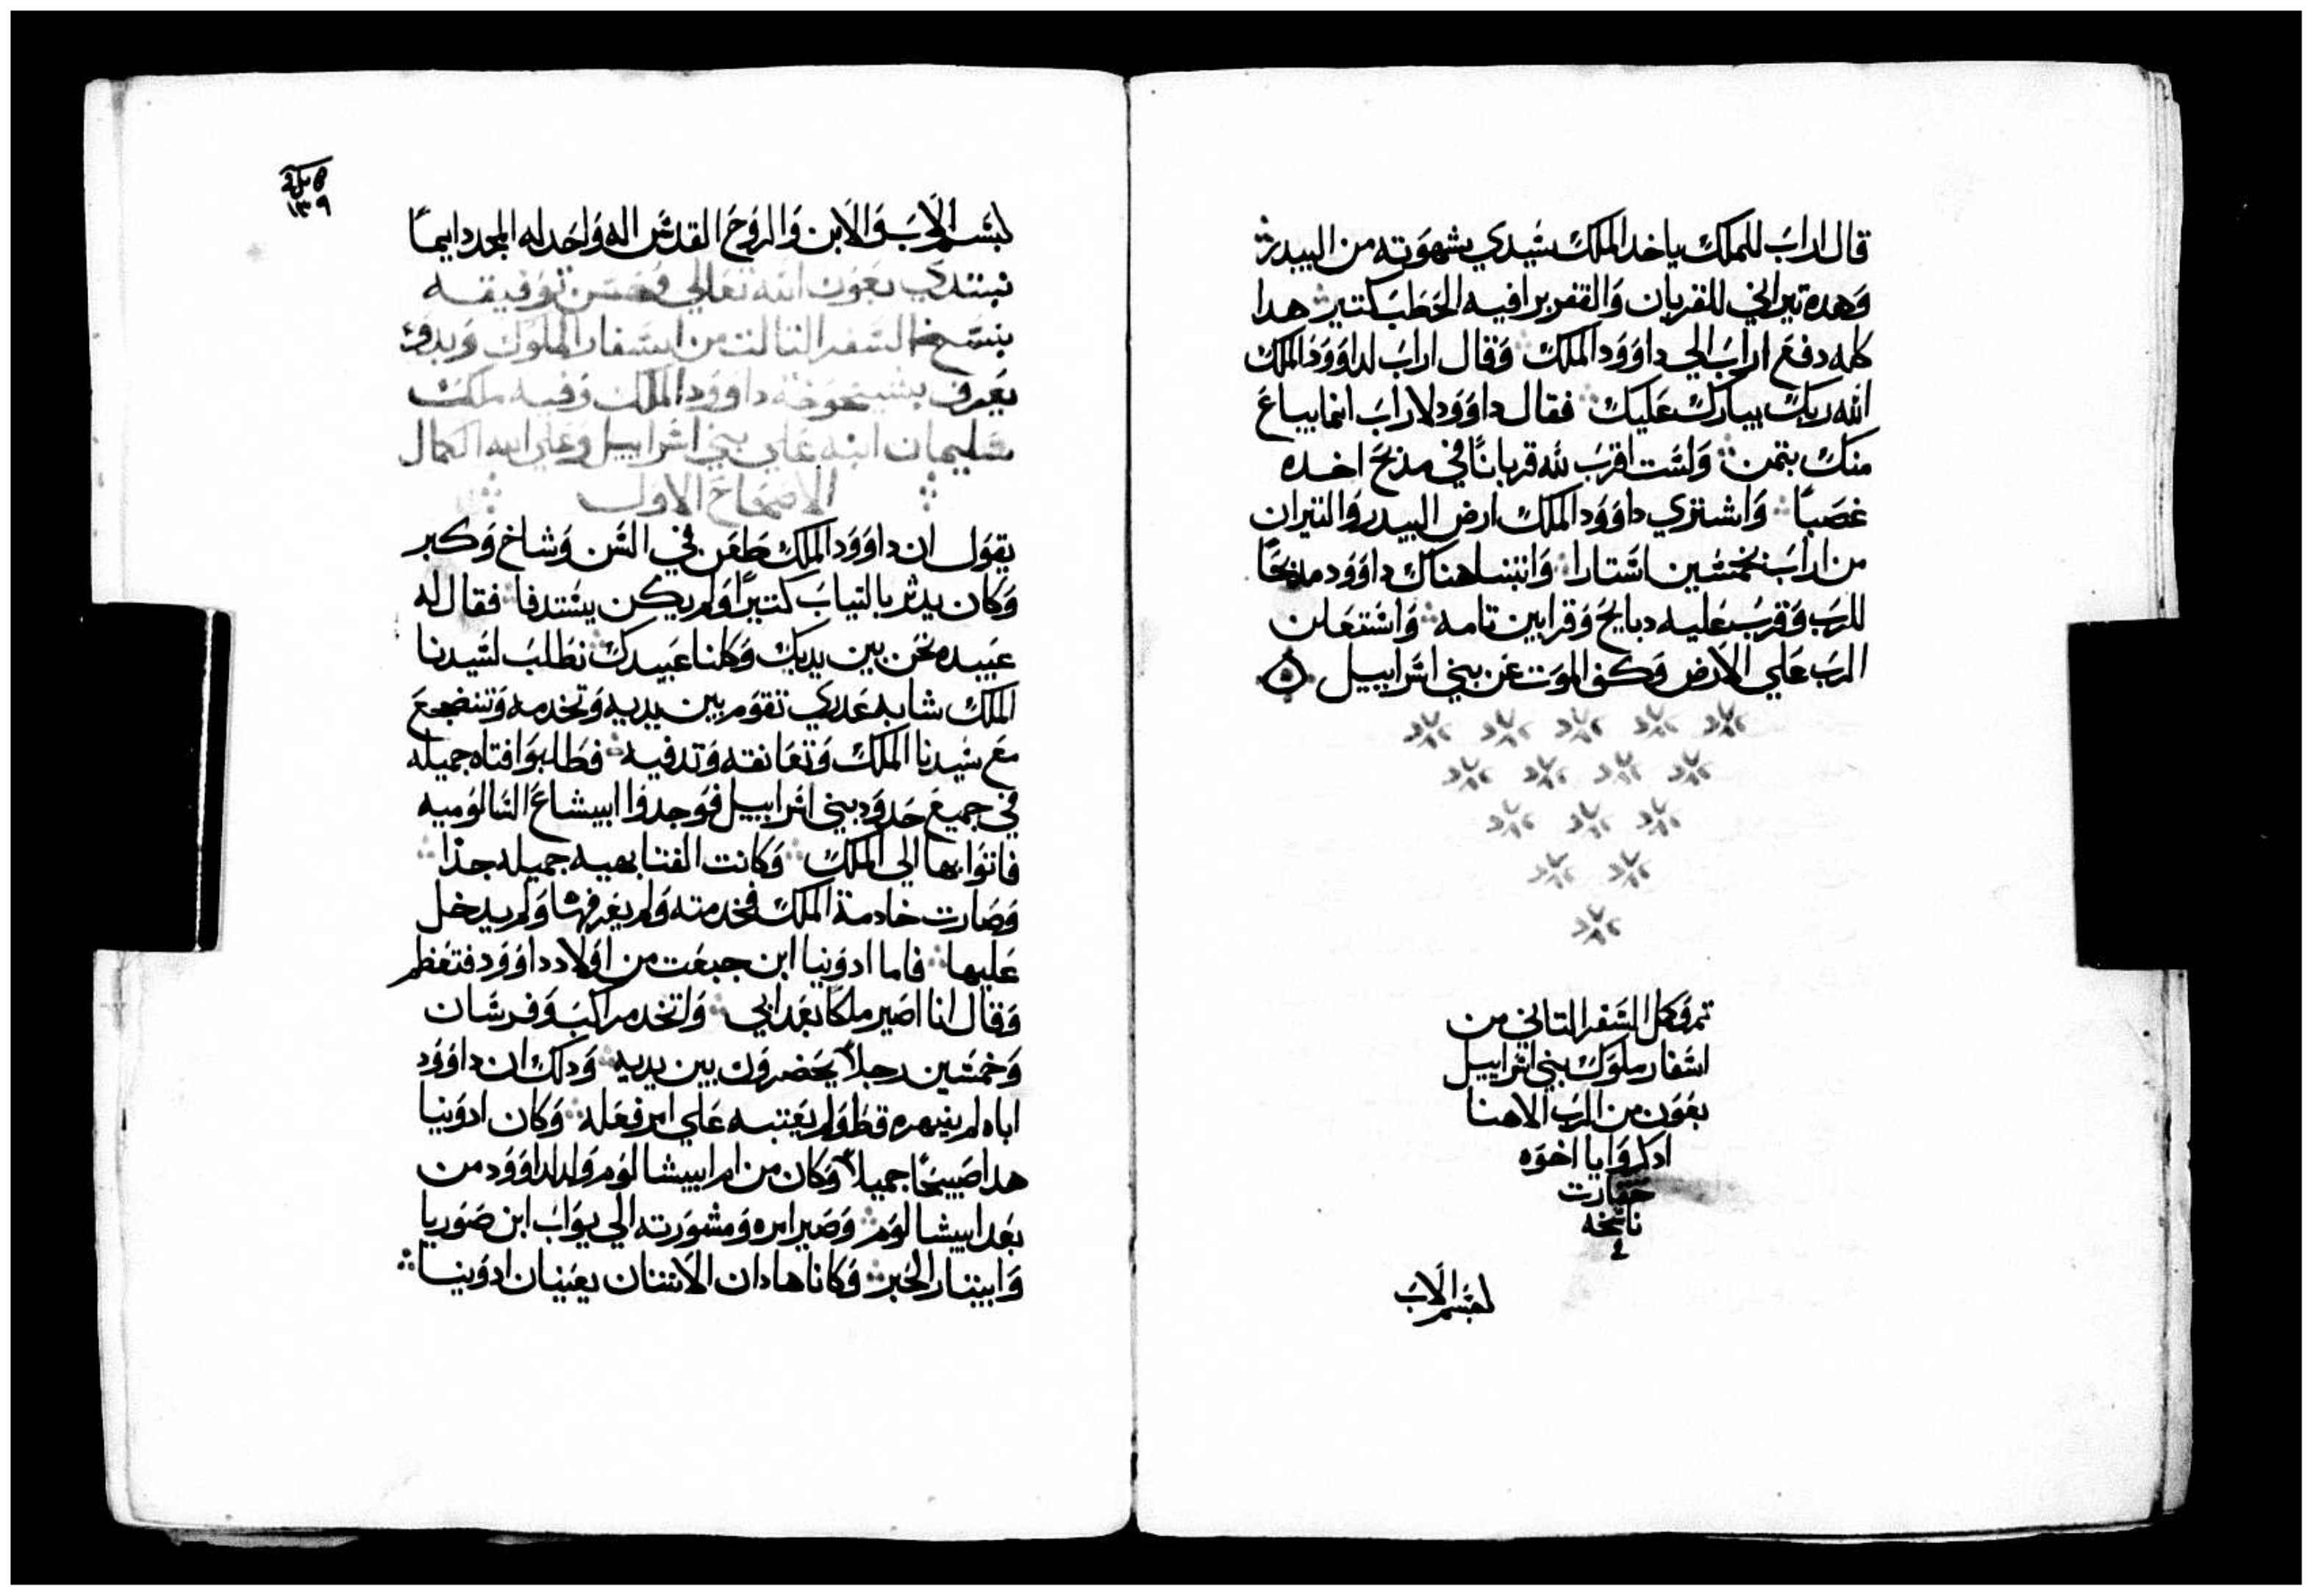 قال اراب للملك ياخد الملك سيدي بشهوته من البيدر
وهده تيراني للقربان والقفر برا فيه الحطب كتير هدا
كله دفع اراب الي داوود الملك وقال اراب لداوود الملك
الله ربك يبارك عليك فقال داوود لاراب انما يباع
منك بتمن ولست اقرب لله قربانًا في مذبح اخده
غصبًا واشتري داوود الملك ارض البيدر والتيران
من اراب بخمسين استارا وابتنا هناك داوود مدبحًا
للرب وقرب عليه دبايح وقرابين تامه واستعلن
الرب علي الارض وكف الموت عن بني اسراييل
تم وكمل السفر التاني من
اسفار ملوك بني اسراييل
بعون من الرب الاهنا
ادكروا يا اخوه
حقارت
ناسخه
بسم الاب
١٣٩
بسم الاب والابن والروح القدس اله واحد له المجد دايمًا
نبتدي بعون الله تعالي وحسن توفيقه
بنسخ السفر التالت من اسفار الملوك وبدو
يعرف بشيخوخة داوود الملك وفيه ملك
سليمان ابنه علي بني اسراييل وعلي الله الكمال
الاصحاح الاول
يقول ان داوود الملك طعن في السن وشاخ وكبر
وكان يدثر بالتياب كتيرًا ولم يكن يستدفا فقال له
عبيده نحن بين يديك وكلنا عبيدك نطلب لسيدنا
الملك شابه عدري تقوم بين يديه وتخدمه وتنضجع
مع سيدنا الملك وتعانقه وتدفيه فطلبوا فتاه جميله
في جميع حدود بني اسراييل فوجدوا ابيشاع السالوميه
فاتوا بها الي الملك وكانت الفتا بهيه جميله جدًا
وصارت خادمة الملك فخدمته ولم يعرفها ولم يدخل
عليها فاما ادونيا ابن جبعت من اولاد داوود فتعظم
وقال انا اصير ملكا بعد ابي واتخد مراكب وفرسان
وخمسين رجلاً يحضرون بين يديه ودلك ان داوود
اباه لم ينهره قط ولم يعتبه علي امر فعله وكان ادونيا
هدا صبيحًا جميلاً وكان من ام ابيشالوم ولد لداوود من
بعد ابيشالوم وصير امره ومشورته الي يواب ابن صوريا
وابيتار الحبر وكانا هادان الاتنان يعينان ادونيا